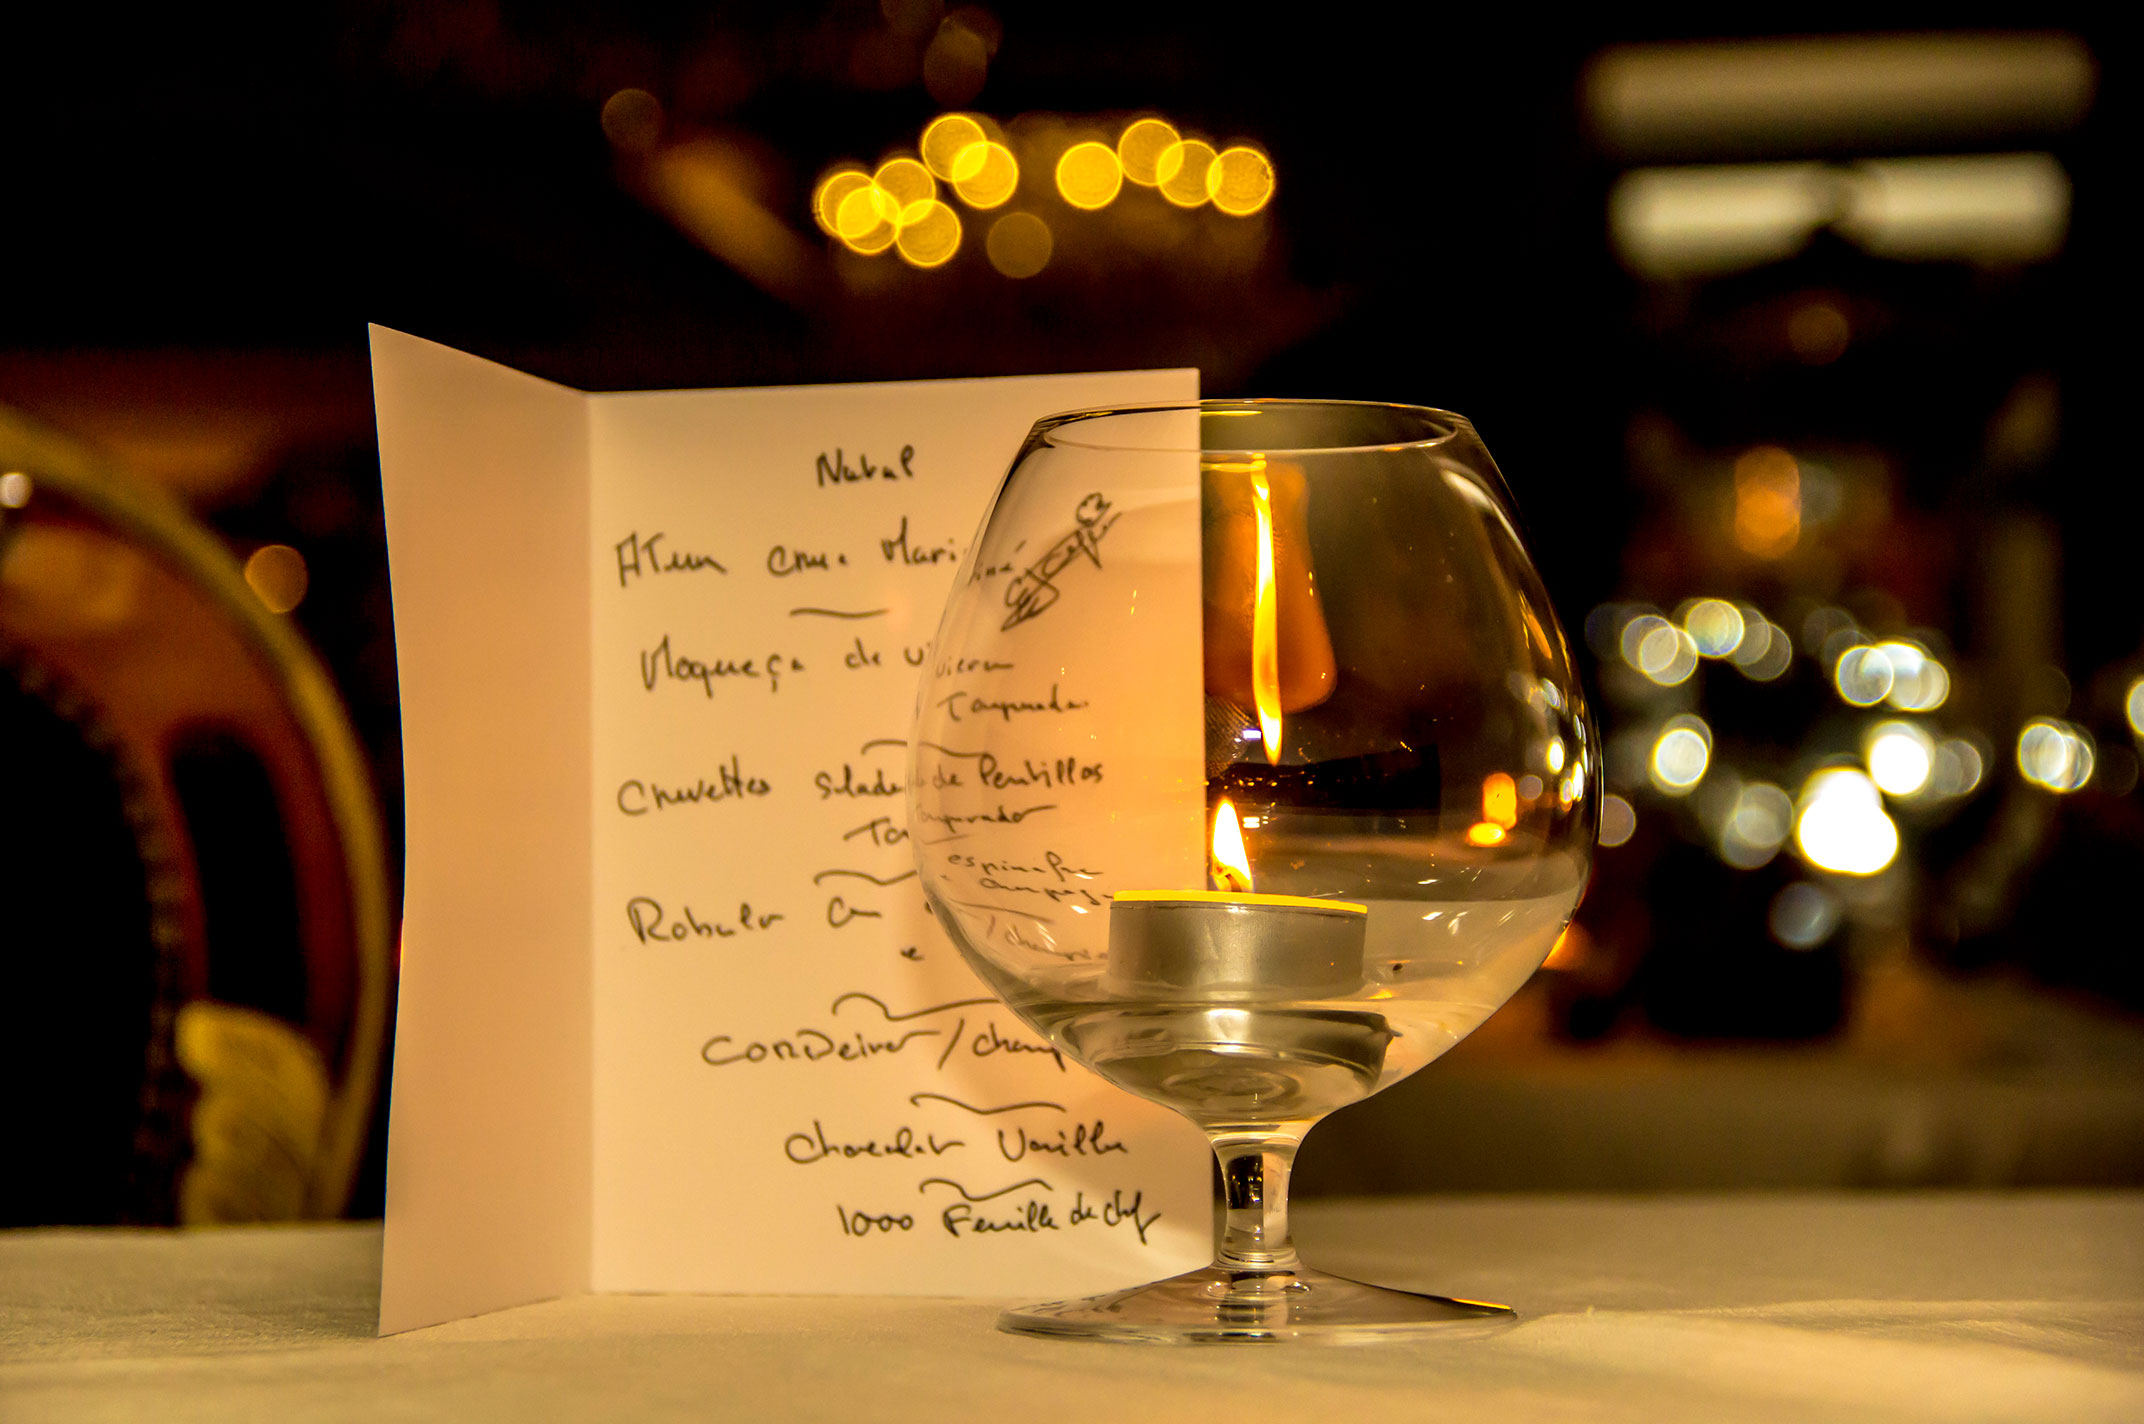 Natal
Atum cru e Mariné
Moqueça de Vieira
Tempurada
Crevettes Salade de lentillas
Temperado
Robalo espinafre
e champag
Cordeiro / champ
Chocolat Vanilla
1000 Feuille du chef